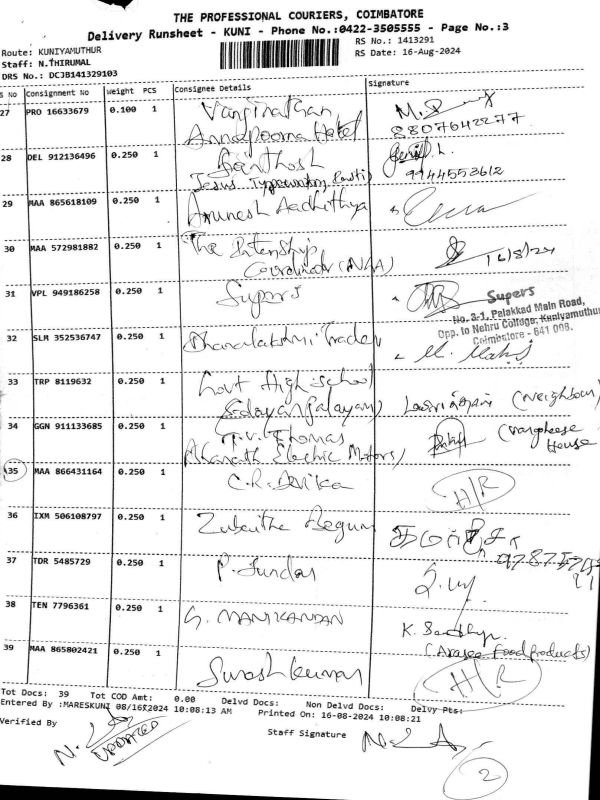 THE PROFESSIONAL COURIERS, COIMBATORE
Delivery Runsheet - KUNI - Phone No.:0422-3505555 - Page No.:3
Route: KUNIYAMUTHUR
RS No.: 1413291
Staff: N.THIRUMAL
RS Date: 16-Aug-2024
DRS No.: DCJB141329103
S No Consignment No Weight PCS Consignee Details Signature
27 PRO 16633679 0.100 1 Vanjinathan
Annapoorna Hotel
8807642277
28 DEL 912136496 0.250 1
Jesus Typewriting
9944553612
29 MAA 865618109 0.250 1 Arunesh Aadhithya
30 MAA 572981882 0.250 1 The Intenship
Coordinator
16/8/24
31 VPL 949186258 0.250 1 Supers
Supers
No. 3-1, Palakkad Main Road,
Opp. to Nehru College, Kuniyamuthur
Coimbatore - 641 008.
32 SLM 352536747 0.250 1 Dhanalakshmi Trader
33 TRP 8119632 0.250 1 Govt High school
(Neighbour)
34 GGN 911133685 0.250 1 Thomas
Electric Motors
(Vargheese
House
35 MAA 866431164 0.250 1 C.R. Devika
H/R
36 IXM 506108797 0.250 1 Zubaitha Begum
37 TDR 5485729 0.250 1 P. Sundar
38 TEN 7796361 0.250 1 S. MANIKANDAN
K.
(Arasee Food Products)
39 MAA 865802421 0.250 1 Suresh kumar
H/R
Tot Docs: 39 Tot COD Amt: 0.00 Delvd Docs: Non Delvd Docs: Delvy Pts:
Entered By :MARESKUNI 08/16/2024 10:08:13 AM Printed On: 16-08-2024 10:08:21
Verified By
Staff Signature
UPDATED
2